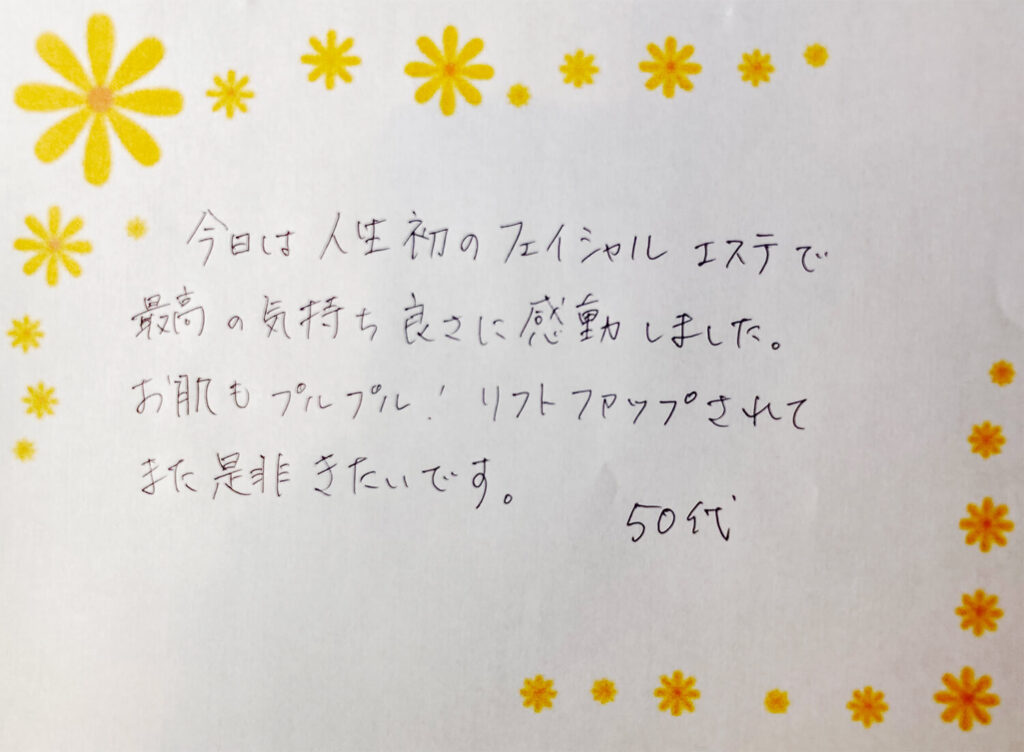 今日は人生初のフェイシャルエステで
最高の気持ち良さに感動しました。
お肌もプルプル！リフトアップされて
また是非きたいです。
50代